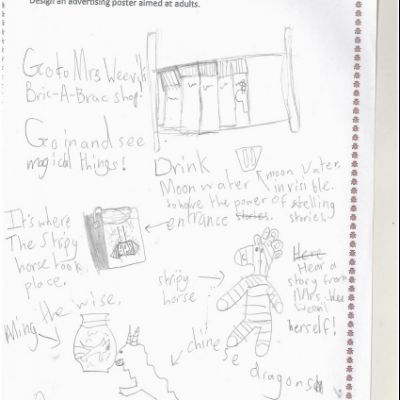 Design an advertising poster aimed at adults.
Go to Mrs Weevil's
Bric-A-Brac shop!
Go in and see
magical things!
Drink
Moon water
to have the power of stelling
entrance stories. stories,
moon water
invisible.
It's where
The Stripy
horse took
place.
stripy
horse
Here
Hear a
story from
Mrs
herself!
the wise,
chinese
dragons